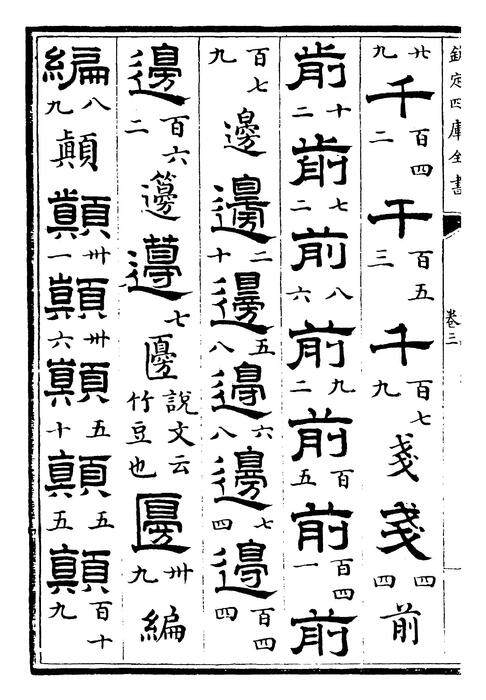 欽定四庫全書
卷三
廿九千百四二千百五三千百七九戔戔四四前
歬十二歬七二前八六前九二前百五前百四一前
百七九邊邊二十邊五八邊六八邊七四邊百四四
邊百六二籩籩七𠥓説文云竹豆也𠥓卅九編
編八九顛顛卅一顛卅六顛五十顛五五顛百十九